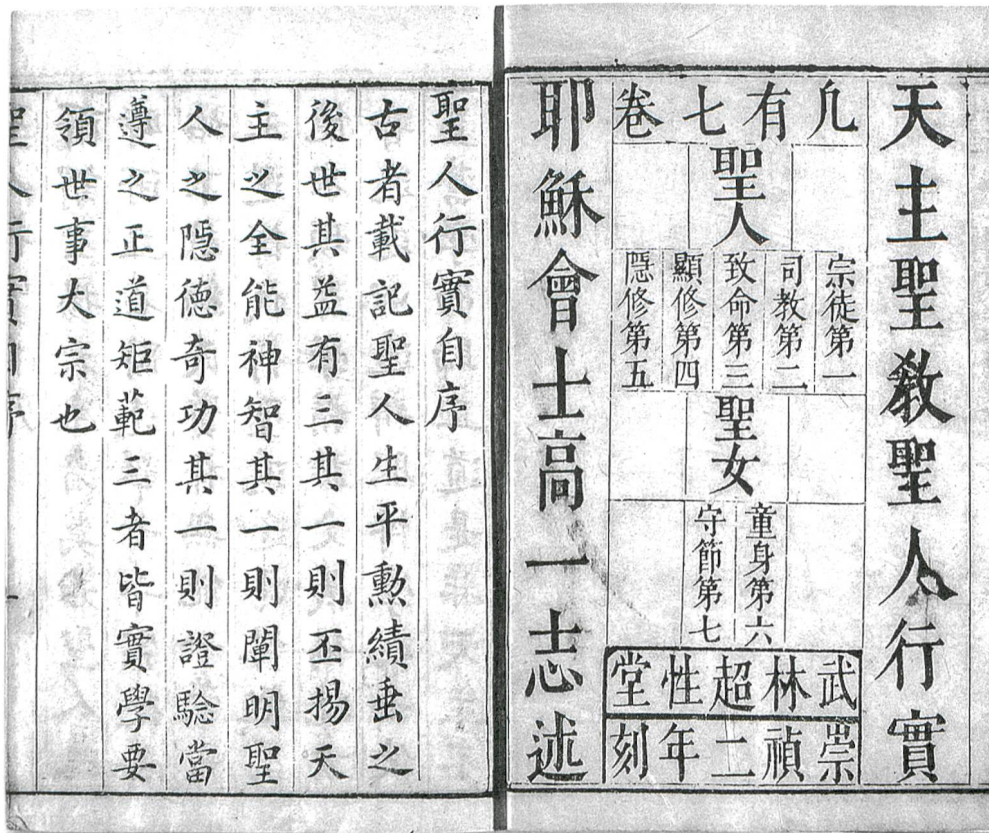 天主聖敎聖人行實
凢有七卷
聖人
宗徒第一
司教第二
致命第三
顯修第四
隱修第五
聖女
童身第六
守節第七
武林超性堂
崇禎二年刻
耶穌會士高一志述
聖人行實自序
古者載記聖人生平勲績垂之
後世其益有三其一則丕揚天
主之全能神智其一則闡明聖
人之隱德奇功其一則證驗當
遵之正道矩範三者皆實學要
領世事大宗也
聖人行實自序 一